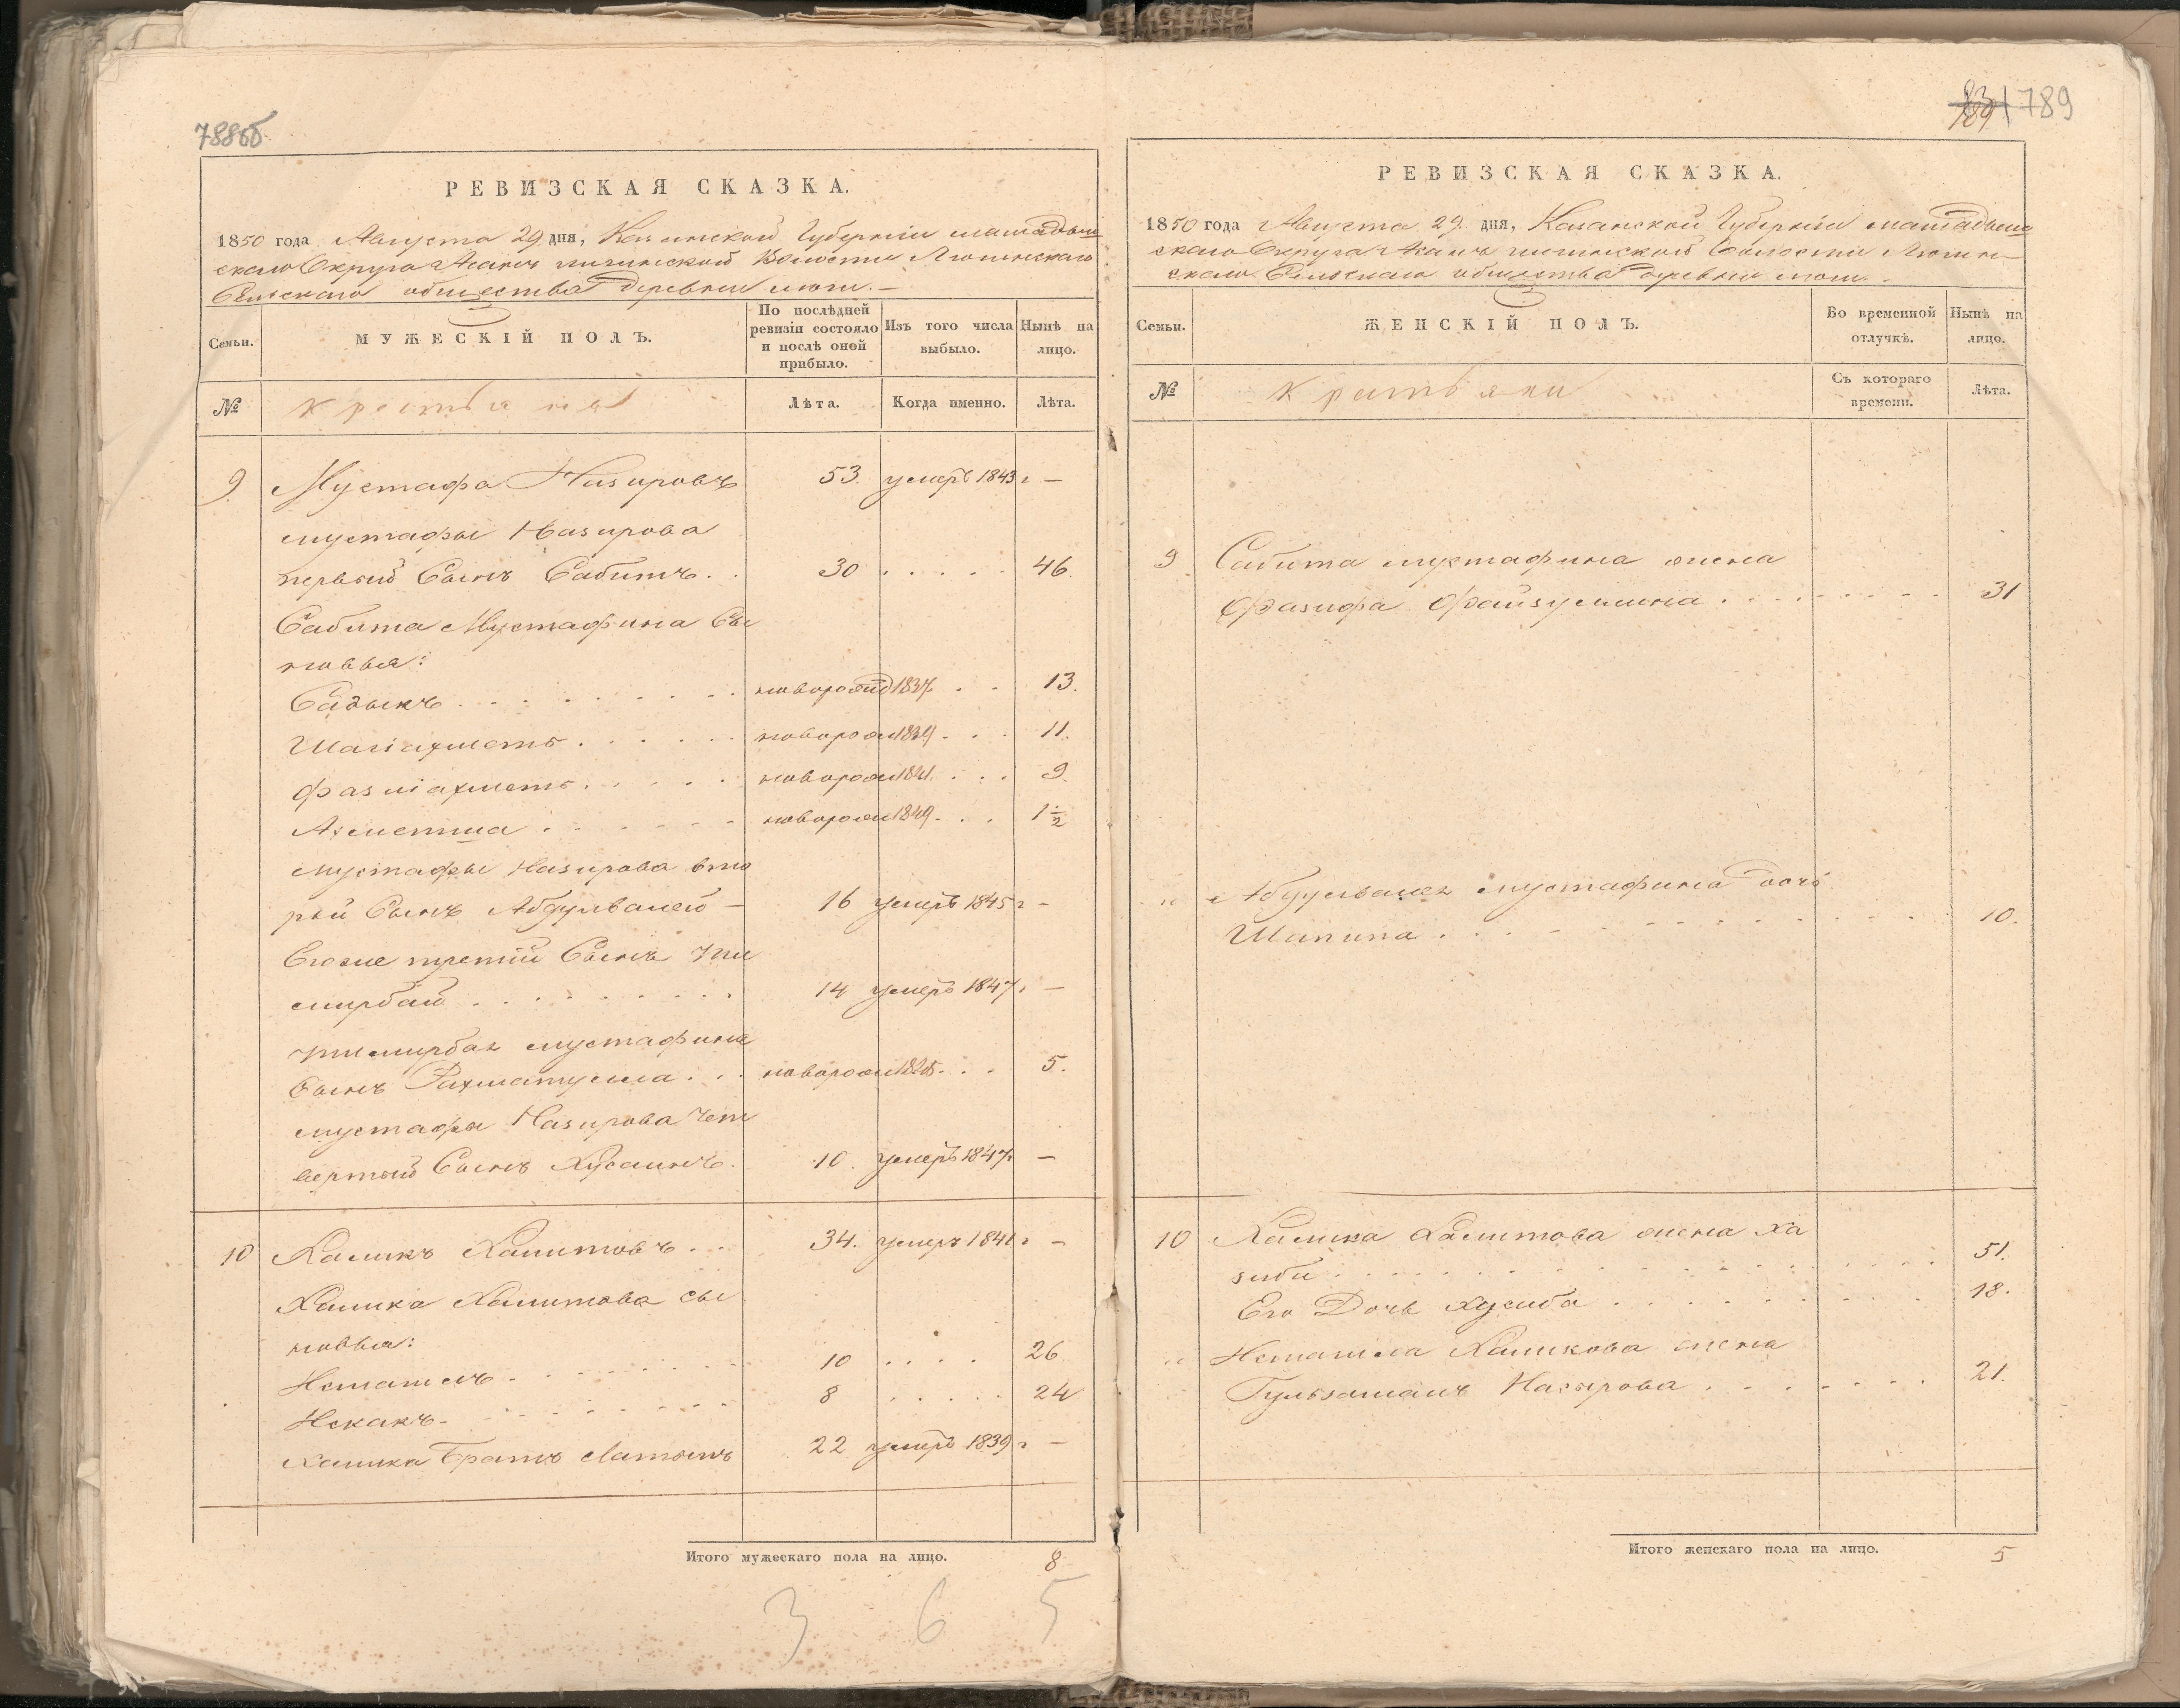 788об
РЕВИЗСКАЯ СКАЗКА.
1850 года Августа 29 дня, Казанской Губерніи мамадыш
скаго Округа Волости
Сельскаго общества деревни
Семьи.
МУЖЕСКІЙ ПОЛЪ.
По послѣдней ревизіи состояло и послѣ оной прибыло.
Изъ того числа выбыло.
Нынѣ на лицо.
№
крестьяна
Лѣта.
Когда именно.
Лѣта.
9 Мустафа Назировъ 53. умеръ 1843 г —
мустафы Назирова
первый Сынъ Сабитъ. 30 . . . . . 46.
Сабита Мустафина Сы
новья:
Садыкъ новорожд 1837 . . 13.
Шагіахметъ новорож 1839 . . . 11.
Фазліахметъ новорож 1841. . . . 9.
Ахметша новорож 1849 . . . 1 1/2
мустафы Назирова вто
рый Сынъ Абдулвалей — 16 умеръ 1845 г —
Егоже третій Сынъ Ути
мирбай 14 умеръ 1847 г —
Утимирбая мустафина
Сынъ Рахматулла . . . новорож 1845 . . . 5.
мустафы Назирова Чет
вертый Сынъ Хусаинъ. 10. умеръ 1847 г —
10 Халикъ Халитовъ . . 34. умеръ 1841 г —
Халика Халитова сы
новья:
Исмагилъ 10 . . . . 26
Исхакъ 8 . . . . . 24
Халика Братъ Латыпъ 22 умеръ 1839 г —
Итого мужескаго пола на лицо. 8
3 6 5
789
РЕВИЗСКАЯ СКАЗКА.
1850 года Августа 29 дня, Казанской Губерніи мамадыш
скаго Округа Волости
скаго Сельскаго общества деревни
Семьи.
ЖЕНСКІЙ ПОЛЪ.
Во временной отлучкѣ.
Нынѣ на лицо.
№
крестьяни
Съ котораго времени.
Лѣта.
9 Сабита мустафина жена
Фазифа Файзуллина 31
" Абдулвалея мустафина дочь
Шапипа 10.
10 Халика Халитова жена Ха
зиби 51.
Его Дочь Хусиба 18.
" Исмагила Халикова жена
Гульзаманъ Насырова 21.
Итого женскаго пола на лицо. 5